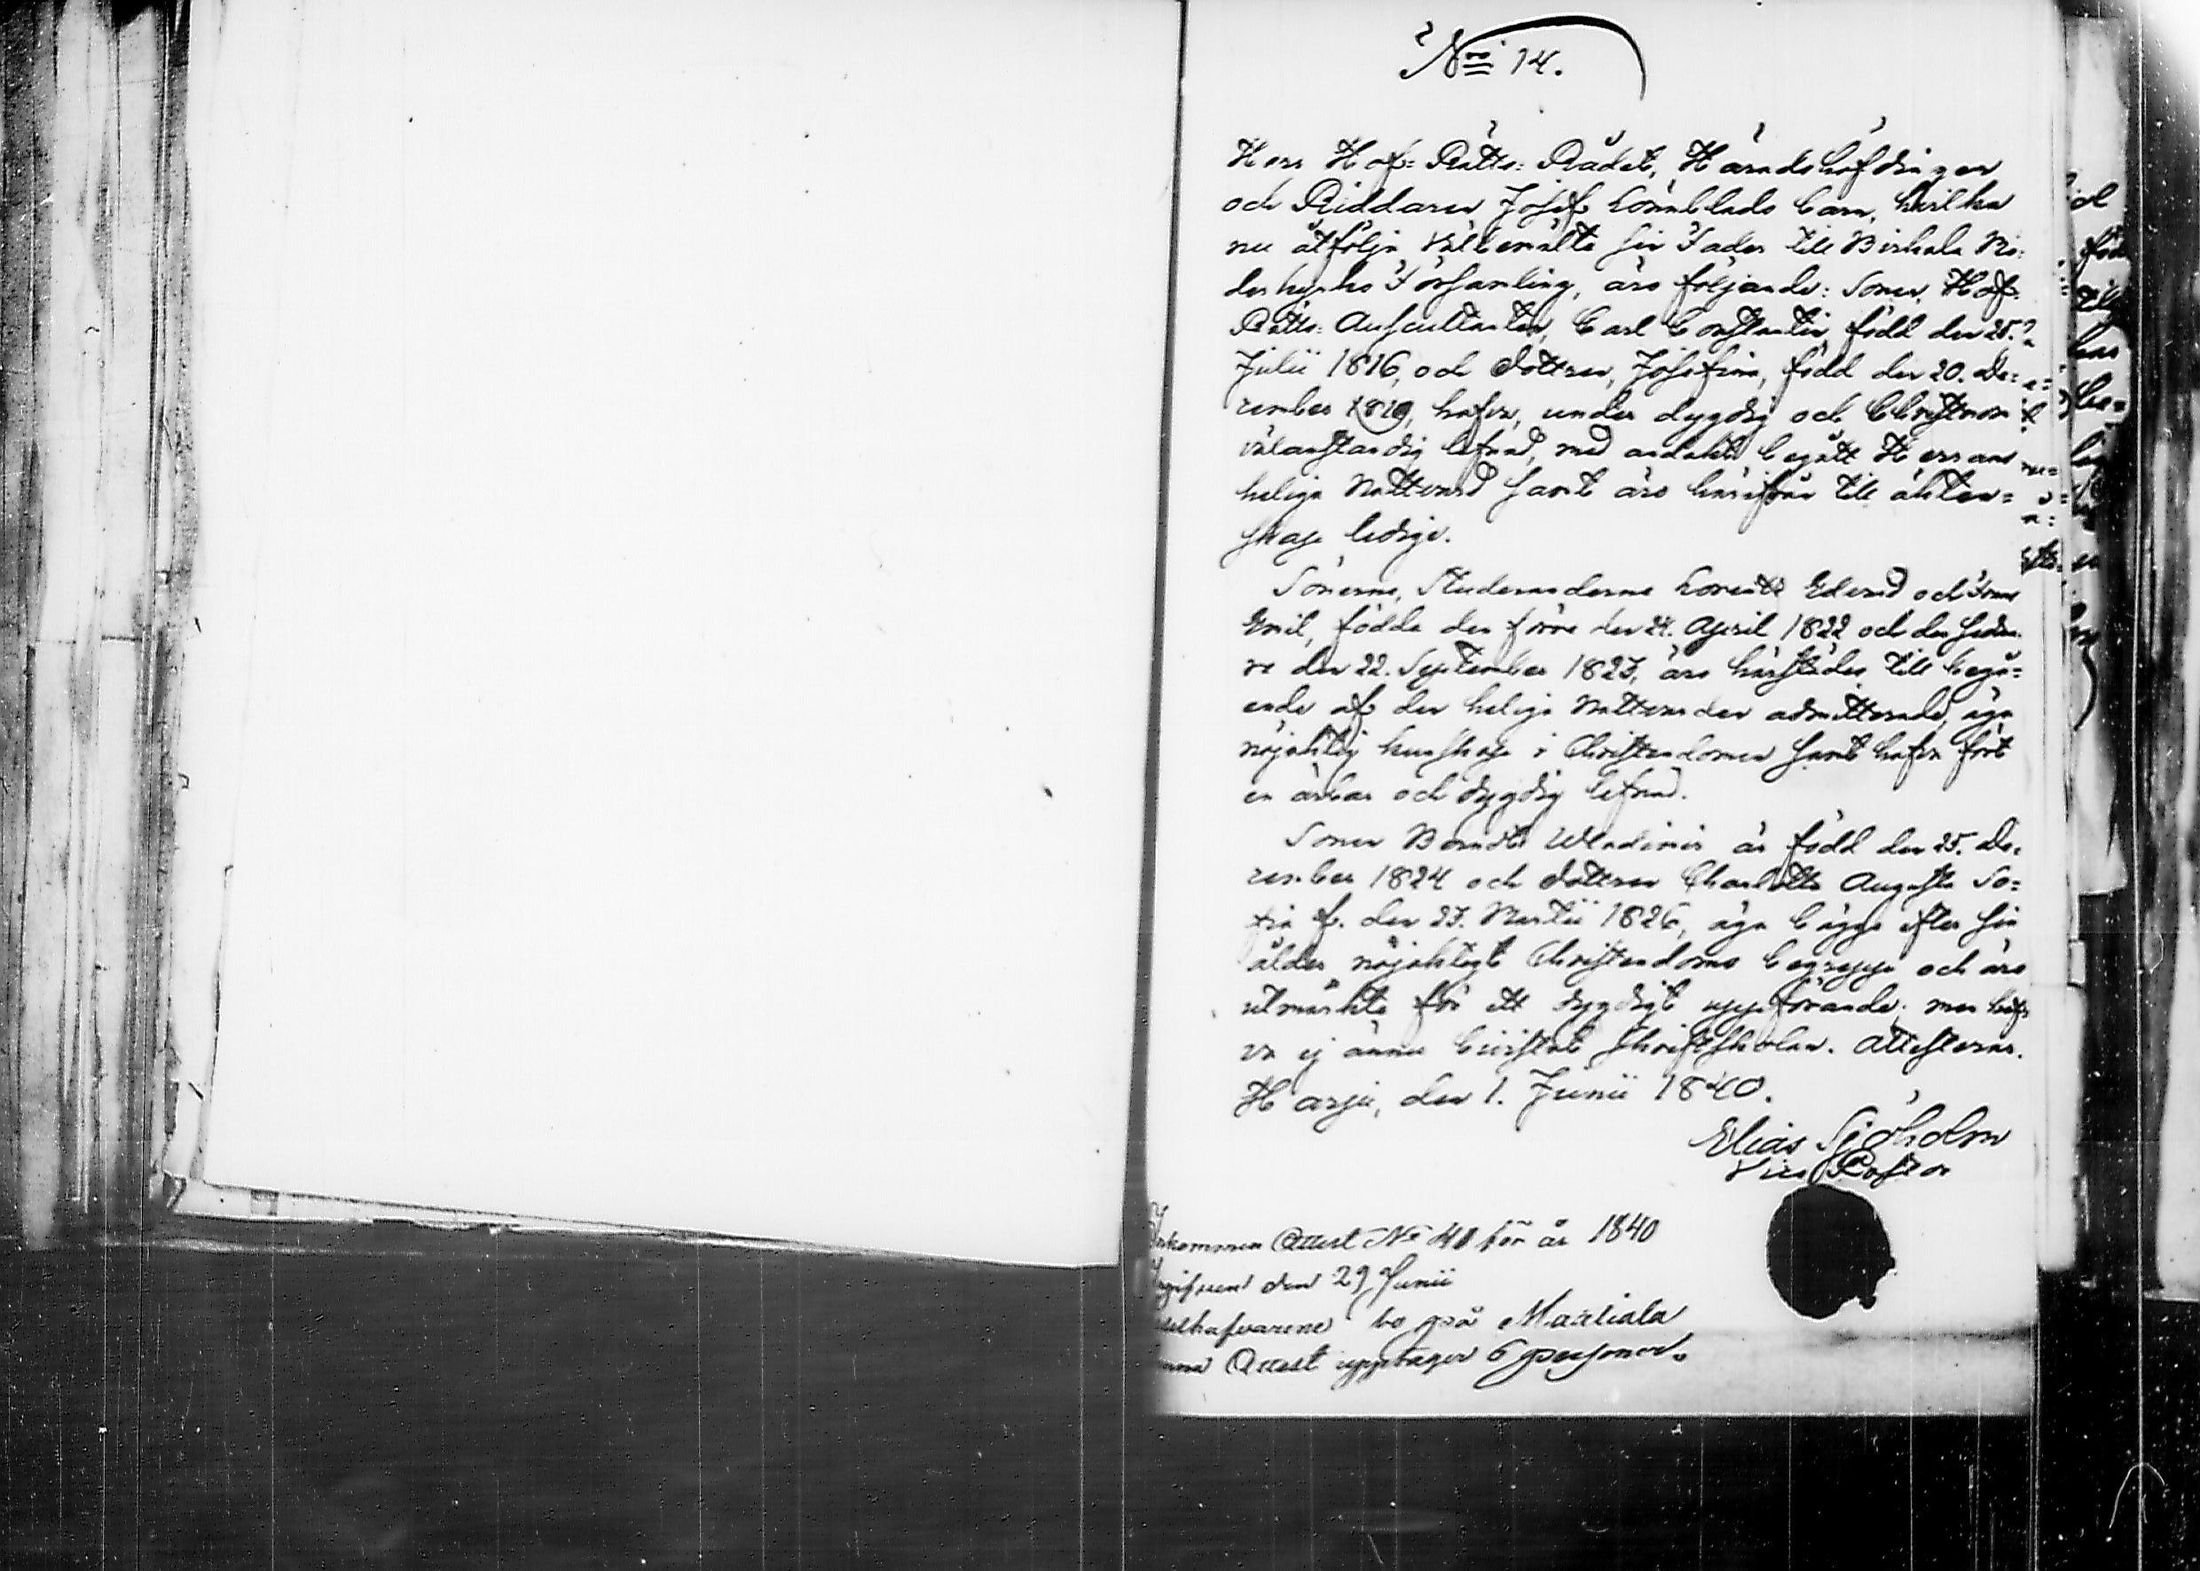 Nro 14.
Herr Hof-Rätts-Rådet, Häradshöfdingen
och Riddaren Josef Lönnblads barn, hvilka
nu åtfölja välbemälte sin Fader till Birkala Mo-
derkyrko Församling, äro följande: Sonen, Hof-
Rätts-Auscultanten, Carl Constantin, född den 25.
Julii 1816, och dottren, Josefina, född den 20. De-
cember 1819, hafva, under dygdig och Christnom
välanständig lefnad, med andakt begått Herrans
heliga Nattvard samt äro härifrån till äkten-
skap ledige.
Sönerne, Studeranderne Edvard och Frans
Emil, födda den förre den 24. April 1822 och den sedna-
re den 22. September 1823, äro härstädes till begå-
ende af den heliga Nattvarden admitterade, äga
nöjaktig kunskap i Christendomen samt hafva fört
en ärbar och dygdig lefnad.
Sonen Berndt Wladimir är född den 25. De-
cember 1824 och dottren Charlotta Augusta So-
fia f. den 27. Martii 1826, äga bägge efter sin
ålder nöjaktigt Christendoms begrepp och äro
utmärkta för ett dygdigt uppförande; men haf-
va ej ännu bevistat Skriftskolan. Attesteras.
Harju, den 1. Junii 1840.
Elias Sjöholm
Vice Pastor
Inkommen Attest No 40 för år 1840
Ingifven den 29 Junii
bo på Maatiala
Attest upptager 6 personer.